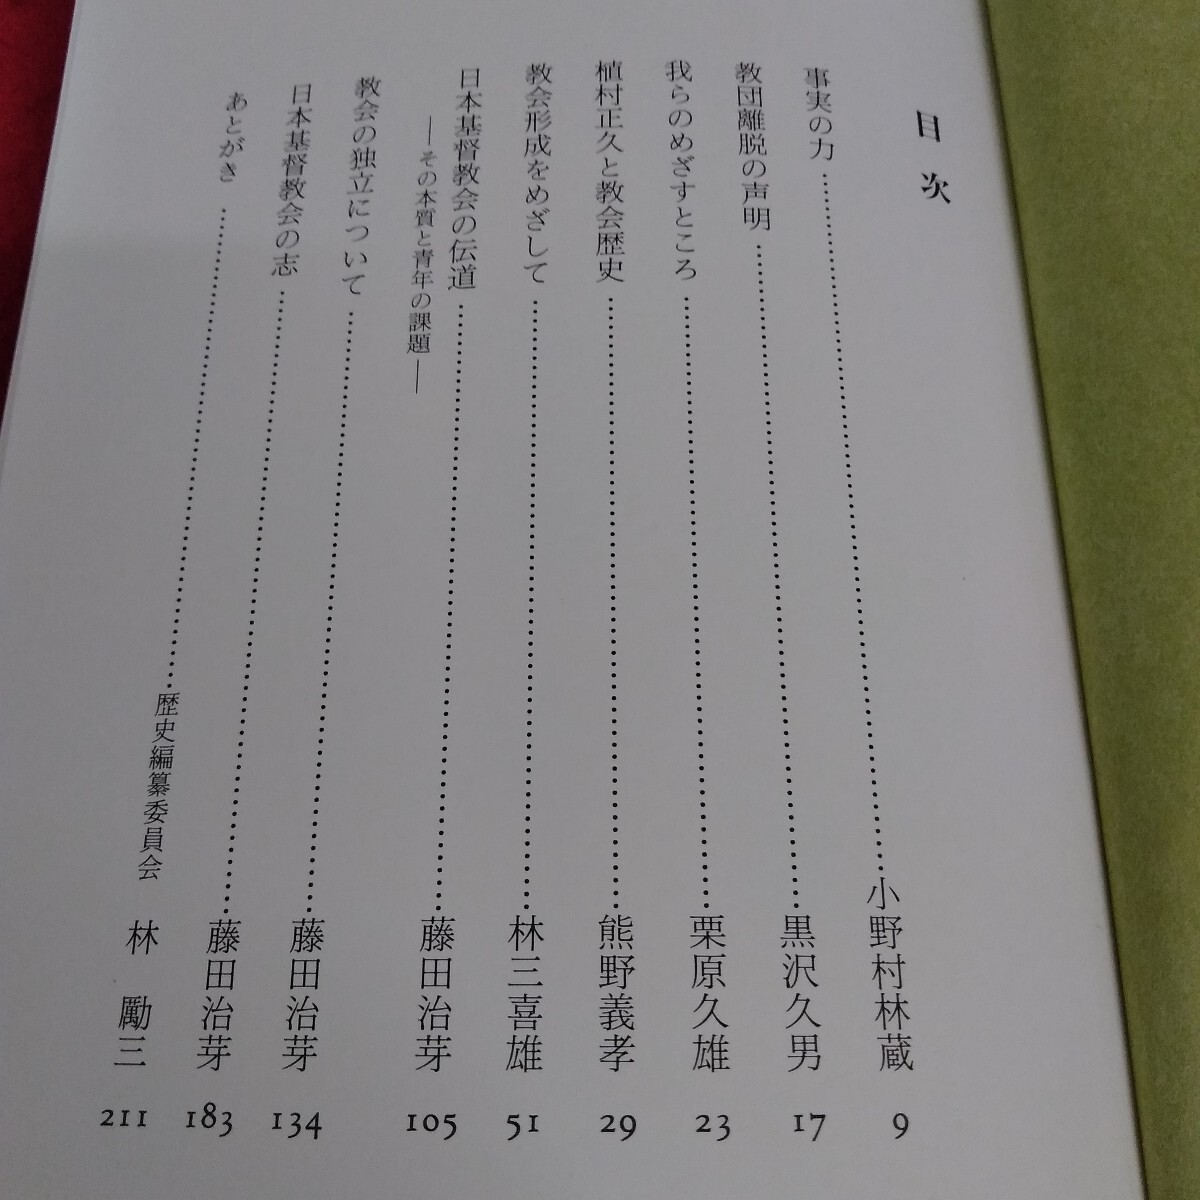 目次
事実の力……小野村林蔵 9
教団離脱の声明……黒沢久男 17
我らのめざすところ……栗原久雄 23
植村正久と教会歴史……熊野義孝 29
教会形成をめざして……林三喜雄 51
日本基督教会の伝道……藤田治芽 105
―その本質と青年の課題―
教会の独立について……藤田治芽 134
日本基督教会の志……藤田治芽 183
あとがき……歴史編纂委員会 林 勵三 211